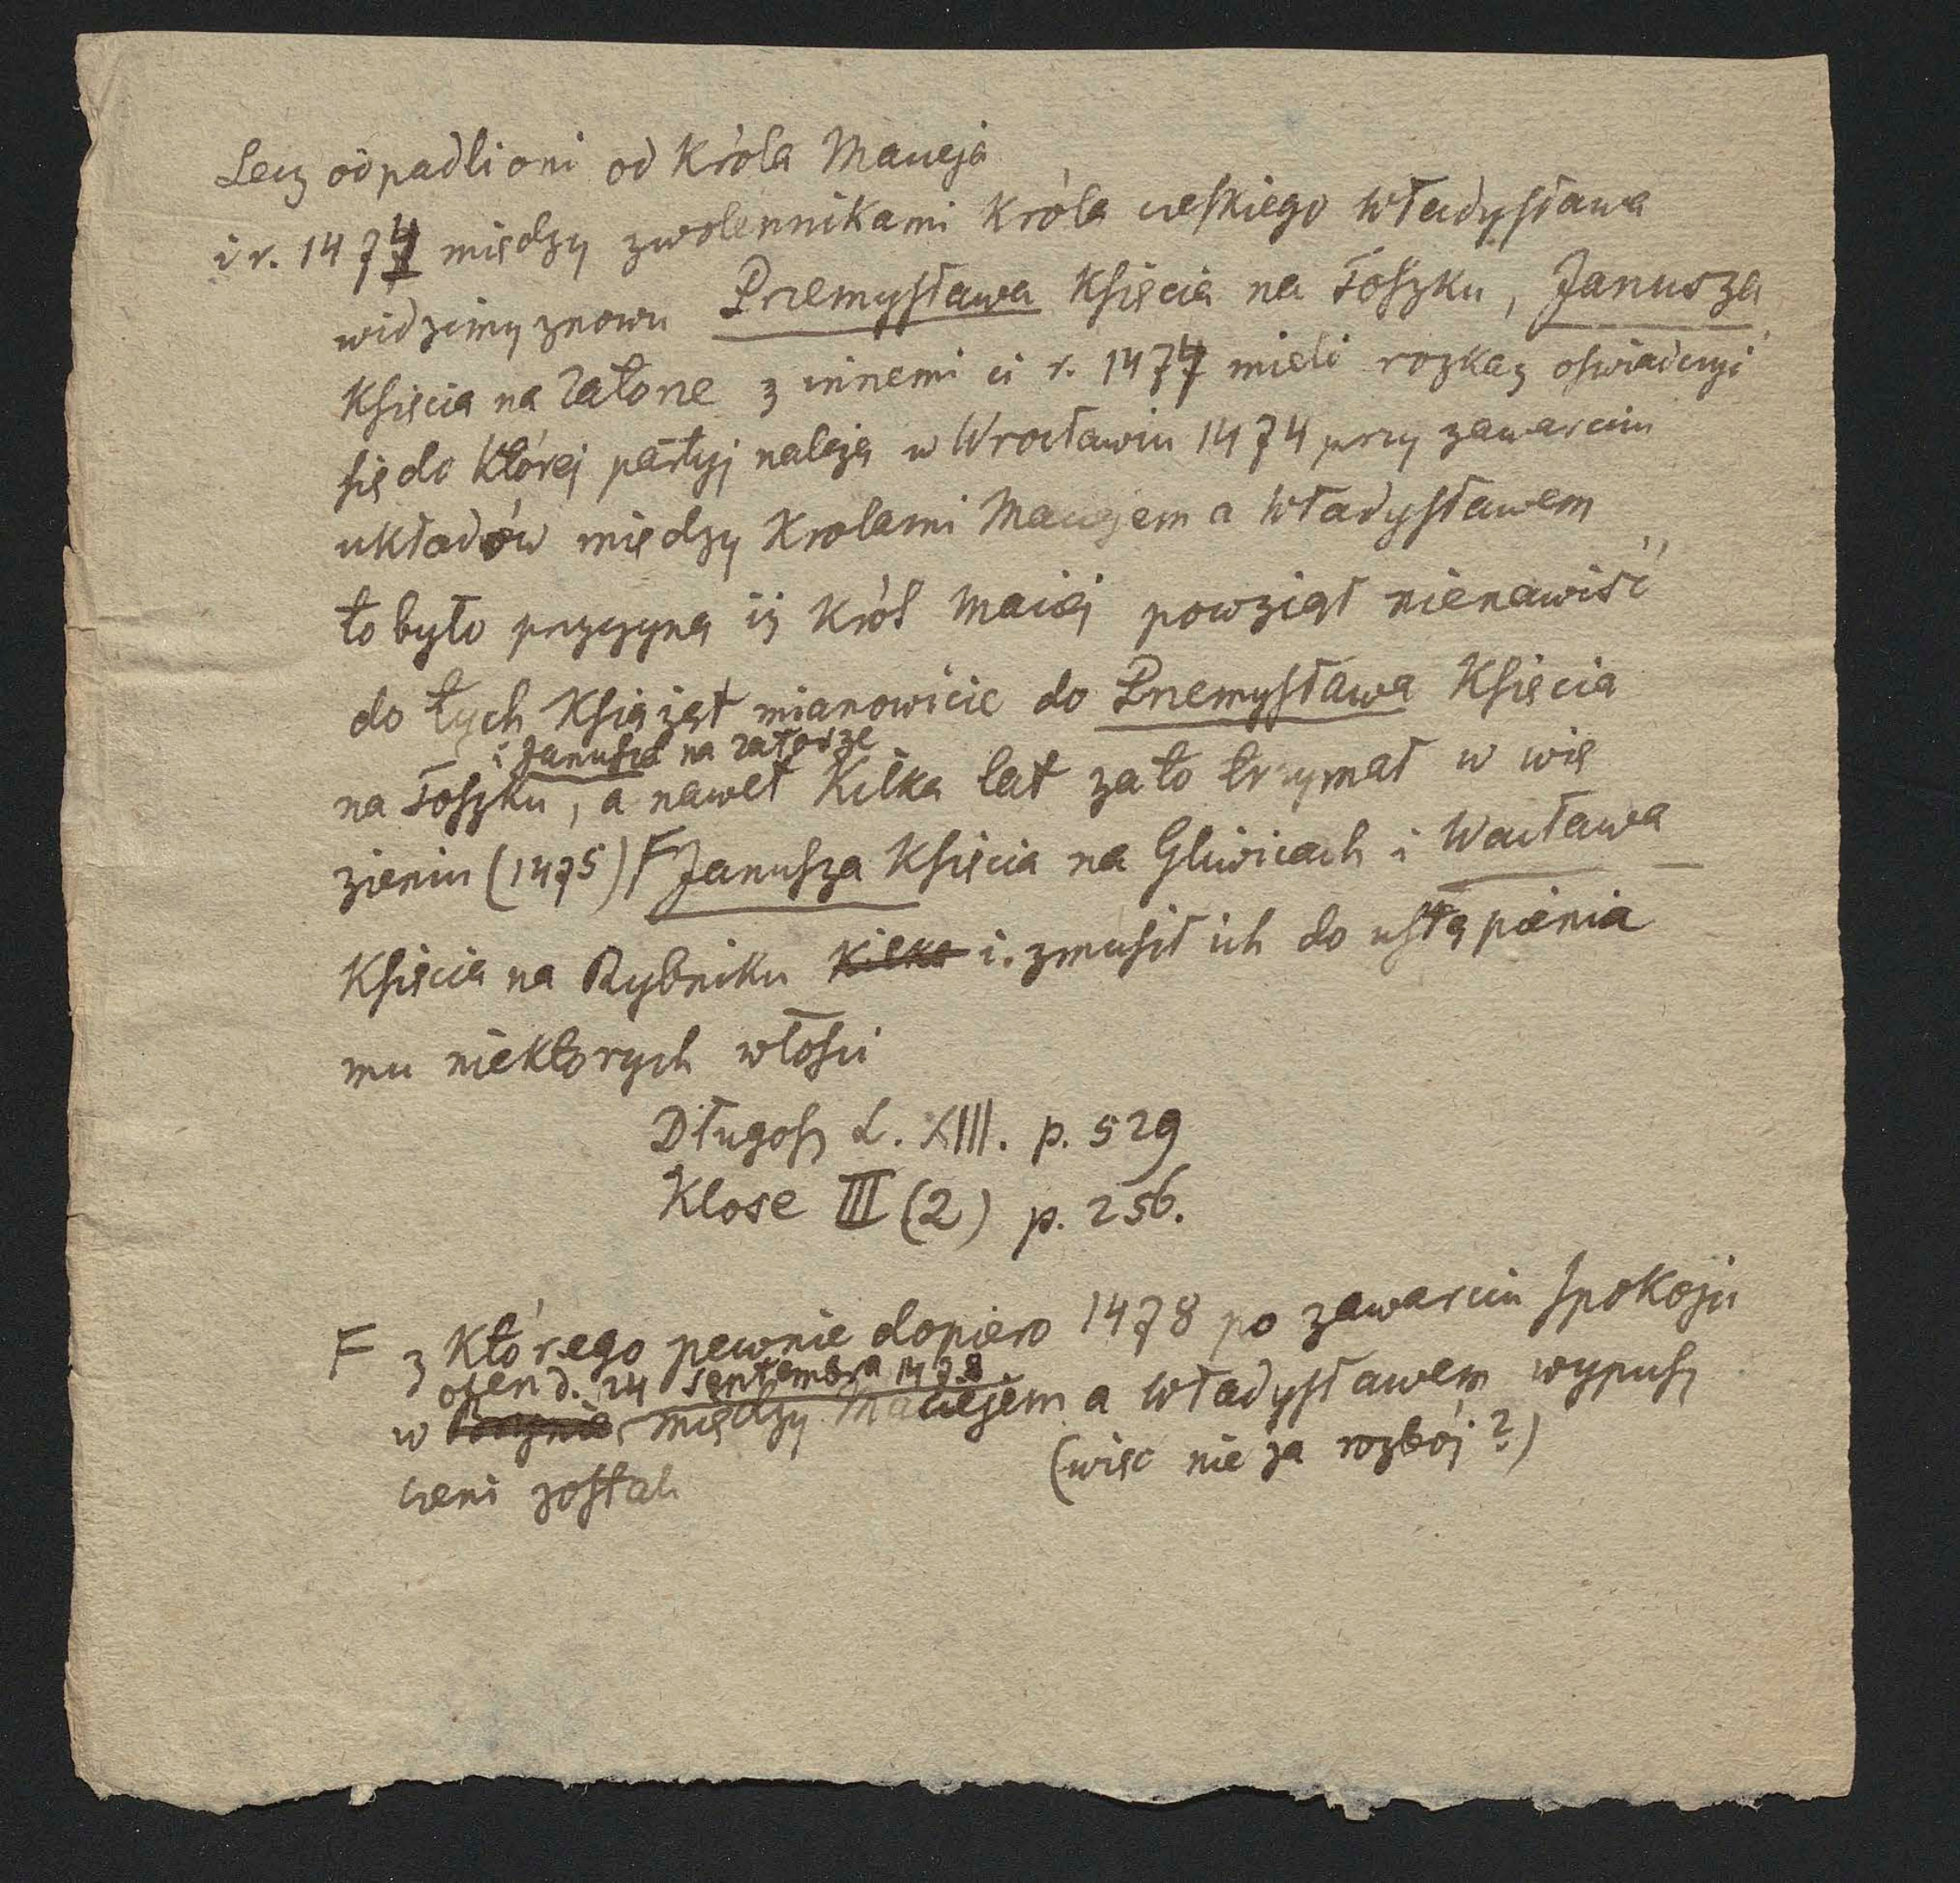 Lecz odpadli oni od Króla Macieja
i r. 1474 między zwolennikami Króla czeskiego Władysława
widzimy znowu Przemysława Księcia na Toszku, Janusza
Księcia na Zatorze z innemi ci r. 1474 mieli rozkaz oświadczyć
się do której partyj należą w Wrocławiu 1474 przy zawarciu
układów między Krolami Maciejem a Władysławem
to było przyczyną iż Król Maciej powziął nienawiść
do tych Książąt mianowicie do Przemysława Księcia
i Janusza na Zatorze
na Toszku, a nawet Kilka lat za to trzymał w wię
zieniu (1475) F Janusza Księcia na Gliwicach i Wacława
Księcia na Rybniku Kilka i zmusił ich do ustąpienia
mu niektorych włości
Długosz L. XIII. p. 529
Klose III (2) p. 256.
F z którego pewnie dopiero 1478 po zawarciu spokoju
d. 24 Septembra 1478
w między Maciejem a Władysławem wypusz
czeni zostali (więc nie za rozbój?)